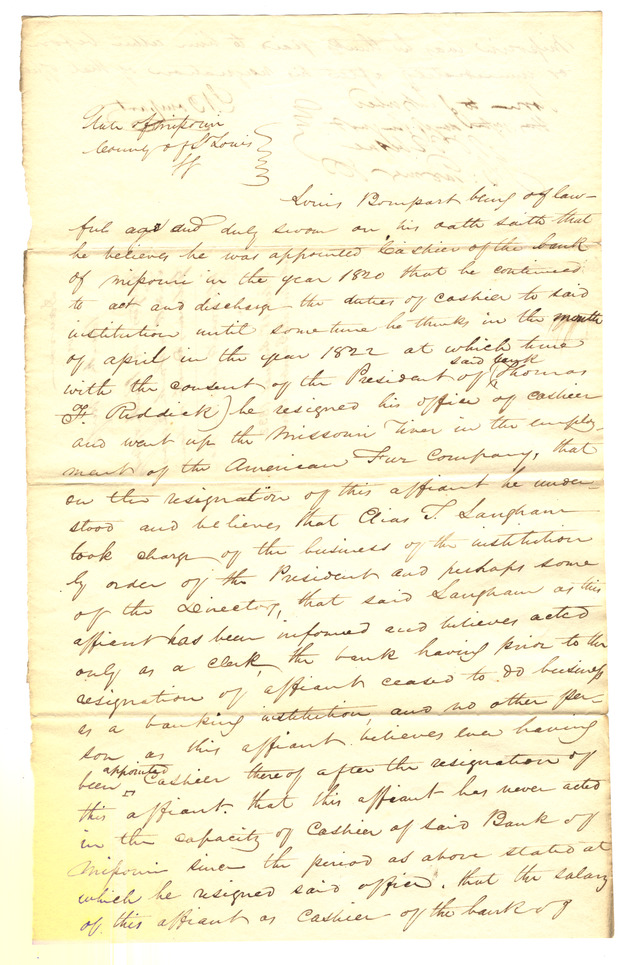 State of Missouri
County of St Louis
ss
Louis Bompart being of law-
ful age and duly sworn on his oath saith that
he believes he was appointed Cashier of the bank
of Missouri in the year 1820 that he continued
to act and discharge the duties of cashier to said
institution until some time he thinks in the month
of april in the year 1822 at which time
said bank
with the consent of the President of (Thomas
F. Riddick) he resigned his office of cashier
and went up the Missouri river in the employ-
ment of the American Fur Company, that
on the resignation of this affiant he under-
stood and believes that Elias T. Langham
took charge of the business of the institution
by order of the President and perhaps some
of the Directors, that said Langham as this
affiant has been informed and believes acted
only as a clerk, the bank having prior to the
resignation of affiant ceased to do business
as a banking institution, and no other per-
son as this affiant believes ever having
appointed
been Cashier thereof after the resignation of
this affiant. that this affiant has never acted
in the capacity of Cashier of said Bank of
Missouri since the period as above stated at
which he resigned said office. that the salary
of this affiant as Cashier of the bank of